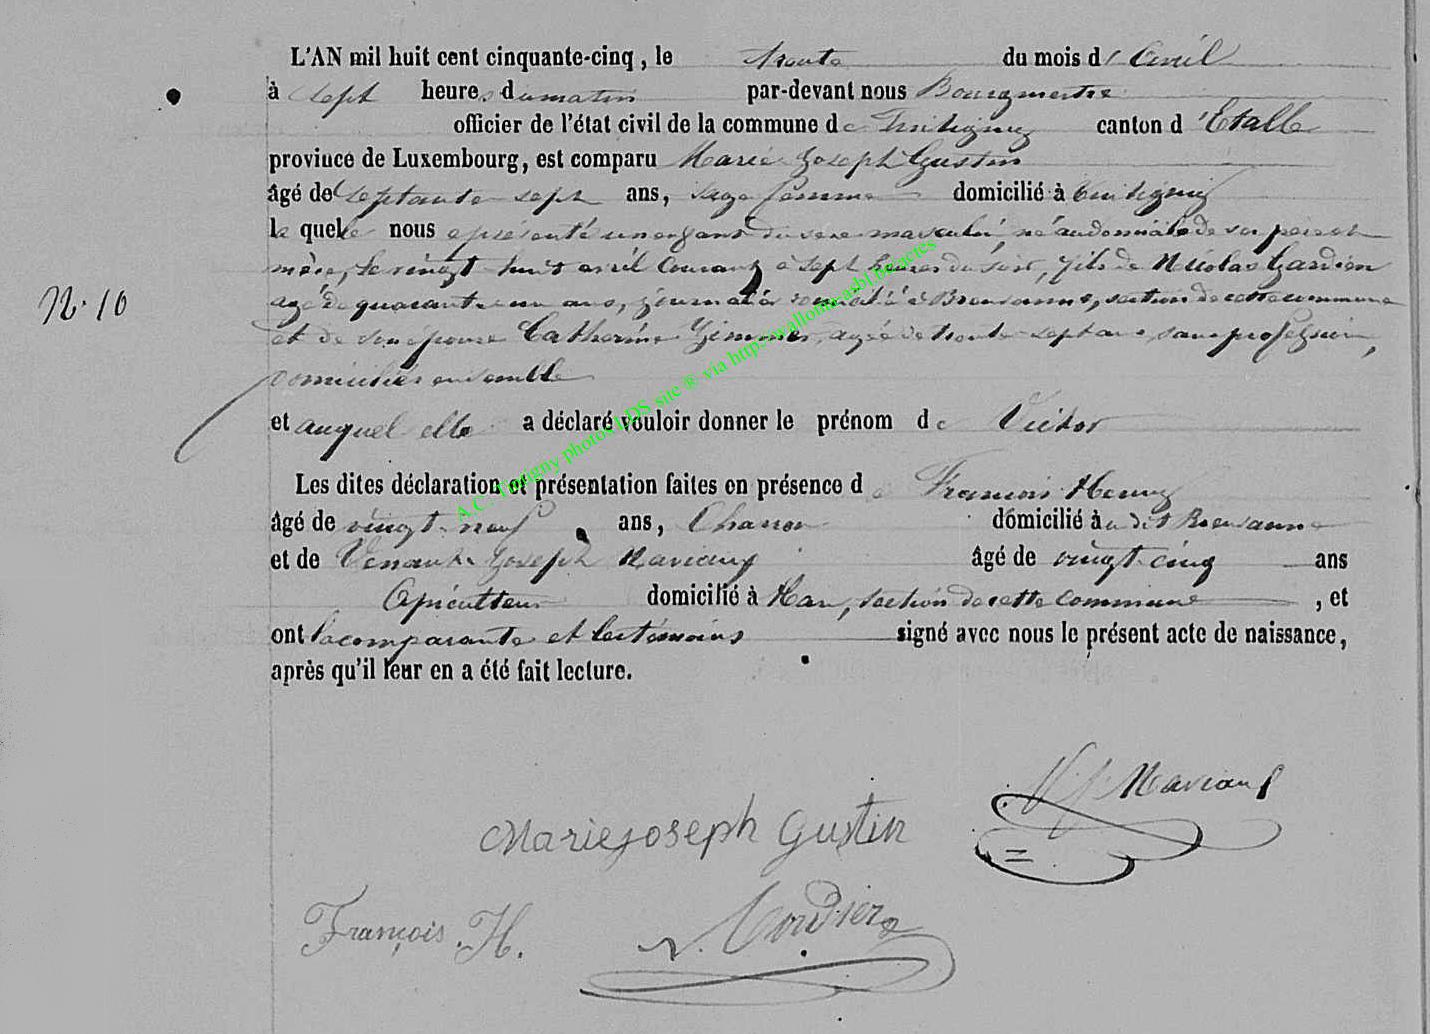 L'AN mil huit cent cinquante-cinq, le trente du mois d'Avril
à sept heures du matin par-devant nous Bourgmestre
officier de l'état civil de la commune de Tintigny canton d'Etalle
province de Luxembourg, est comparu Marie Joseph Gustin
âgé de septante sept ans, sage femme domicilié à Tintigny
la quelle nous a présenté un enfant du sexe masculin, né au domicile de ses père et
mère, le vingt huit avril courant à sept heures du soir, fils de Nicolas Gardien
N° 10
agé de quarante un ans, journalier domicilié à Breuvanne, section de cette commune
et de son épouse Catherine Zimmer, agée de trente sept ans, sans profession,
domiciliés ensemble
et auquel elle a déclaré vouloir donner le prénom de Victor
Les dites déclaration et présentation faites en présence de François Henry
âgé de vingt-neuf ans, Charron domicilié à dit Breuvanne
et de Venant Joseph Maviaux âgé de vingt cinq ans
domicilié à Han, section de cette commune, et
ont la comparante et les témoins signé avec nous le présent acte de naissance,
après qu'il leur en a été fait lecture.
V J Maviaux
Marie joseph Gustin
François .H.
A.C. Tintigny photos LDS site ® via http://wallonia-asbl.be/actes